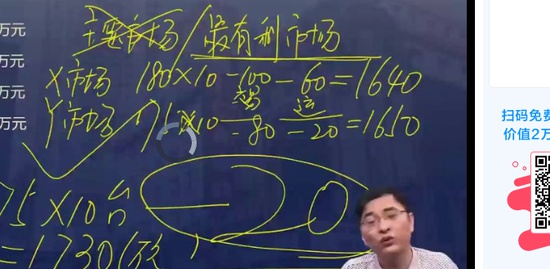 万元
主要市场/最有利市场
万元
X市场 180×10-100-60=1640
万元
易 运
万元
Y市场 175×10-80-20=1650
75×10台 -20
=1730(
扫码免费
价值2万